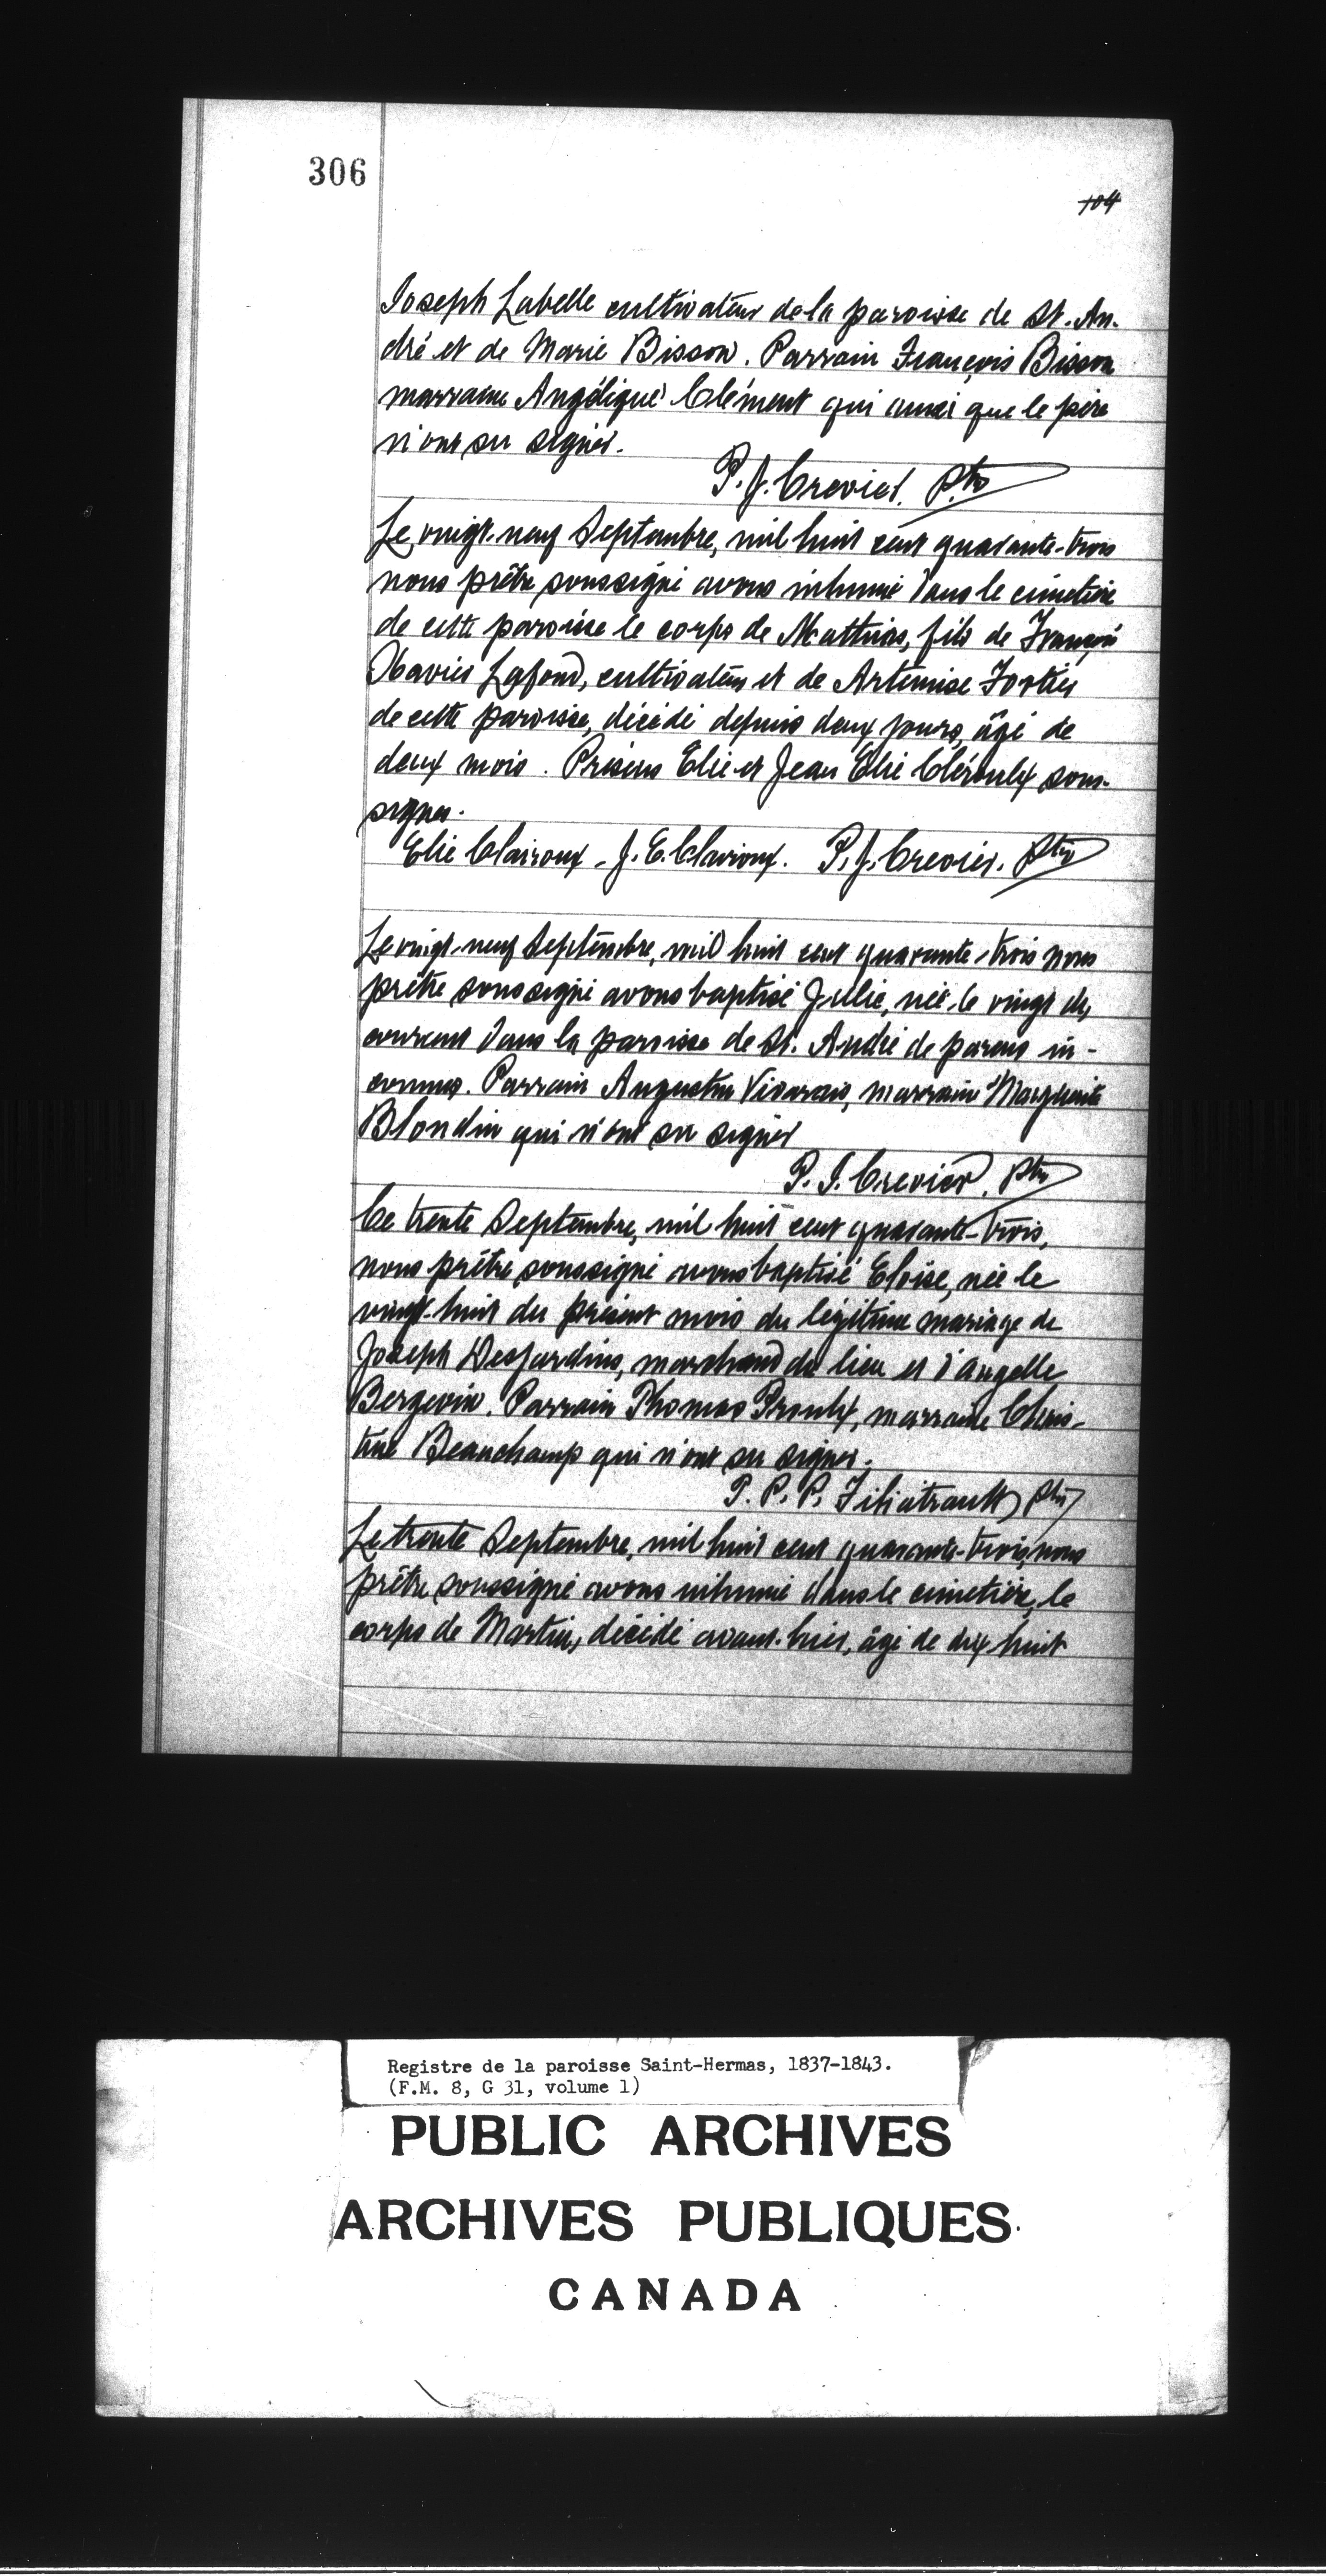 306
104
Joseph Labelle cultivateur de la paroisse de St. An-
dré et de Marie Bisson. Parrain François Bisson
marraine Angélique Clément qui ainsi que le père
n'ont su signer.
P. J. Crevier. ptre
Le vingt-neuf Septembre, mil huit cent quarante-trois
nous prêtre soussigné avons inhumé dans le cimetière
de cette paroisse le corps de Mathias, fils de François
Xavier Lafond, cultivateur et de Artemise Fortier
de cette paroisse, décédé depuis deux jours, âgé de
deux mois. Présens Elie et Jean Elie Clérouly sous-
signés.
Elie Clairoux - J. E. Clairoux. P. J. Crevier. ptre
Le vingt-neuf Septembre, mil huit cent quarante-trois nous
prêtre soussigné avons baptisé Julie, née le vingt du
courant dans la paroisse de St. André de parens in-
connus. Parrain Augustin Vivarais, marraine Marguerite
Blondin qui n'ont su signer
P. J. Crevier. ptre
Ce trente Septembre, mil huit cent quarante-trois,
nous prêtre soussigné avons baptisé Eloise, née le
vingt-huit du présent mois du légitime mariage de
Joseph Desjardins, marchand du lieu et d'Angelle
Bergevin. Parrain Thomas Proulx, marraine Chris-
tine Beauchamp qui n'ont su signer.
P. P. Filiatrault ptre
Le trente Septembre, mil huit cent quarante-trois, nous
prêtre soussigné avons inhumé dans le cimetière, le
corps de Martin, décédé avant-hier, âgé de dix-huit
Registre de la paroisse Saint-Hermas, 1837-1843.
(F.M. 8, G 31, volume 1)
PUBLIC ARCHIVES
ARCHIVES PUBLIQUES
CANADA